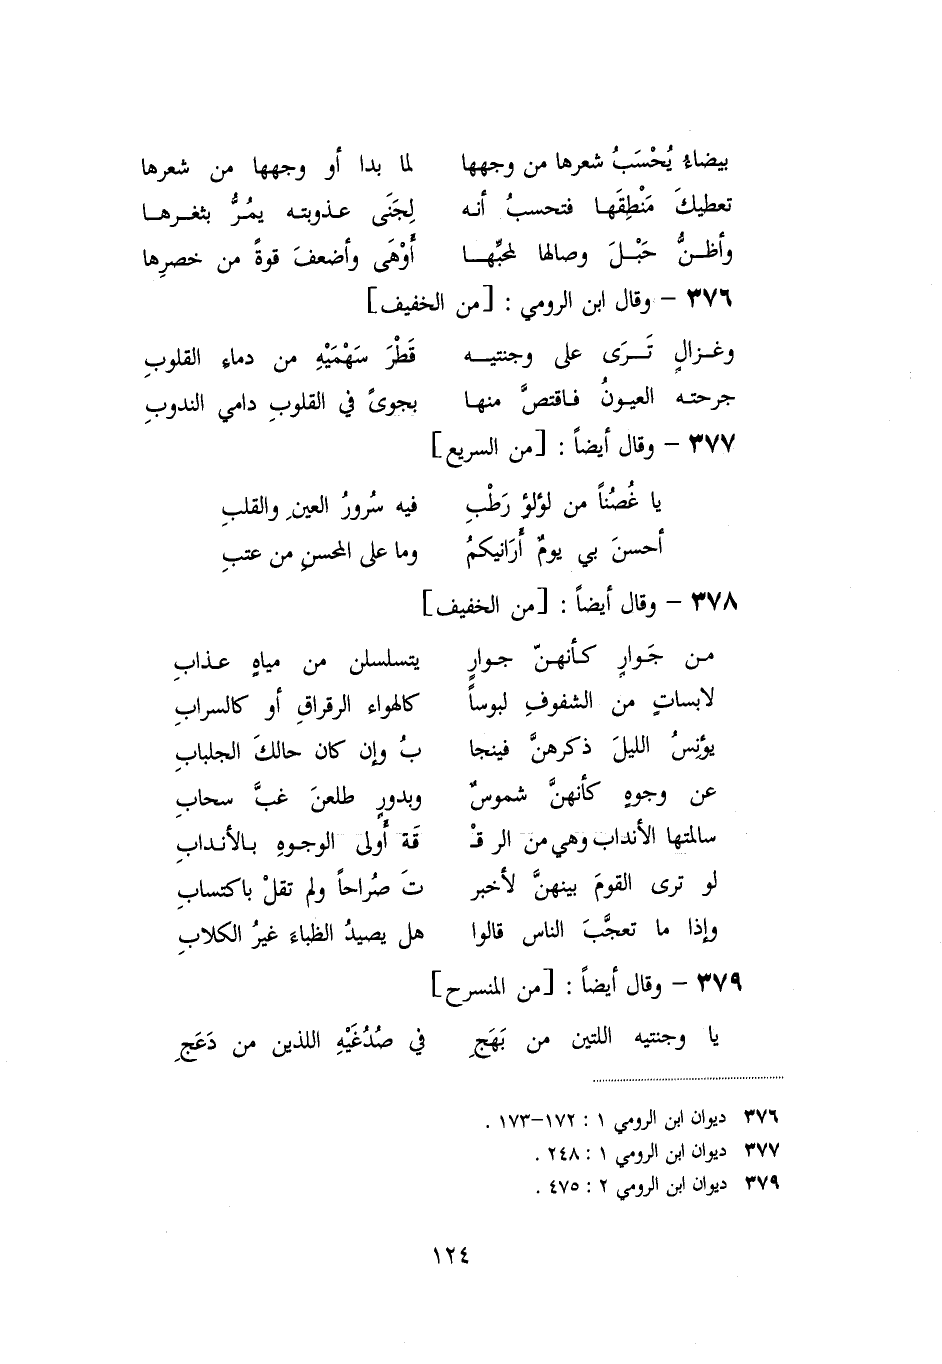 بيضاءُ يُحْسَبُ شعرها من وجهها لما بدا أو وجهها من شعرها
تعطيكَ مَنْطِقَهـا فتحسبُ أنـه لِجَنَى عـذوبتـه يمُـرُّ بثغـرهـا
وأظـنُّ حَبْـلَ وصالها لمحبِّهـا أَوْهَى وأضعفَ قوةً من خصرِها
٣٧٦ – وقال ابن الرومي : [من الخفيف]
وغـزالٍ تَـرَى على وجنتيـه قَطْرَ سَهْمَيْهِ من دماءِ القلوبِ
جرحتـه العيـونُ فـاقتصَّ منهـا بجوىً في القلوبِ دامي الندوبِ
٣٧٧ – وقال أيضاً : [من السريع]
يا غُصُناً من لؤلؤٍ رَطْبِ فيه سُرورُ العينِ والقلبِ
أحسنَ بي يومٌ أَرَانيكمُ وما على المحسنِ من عتبِ
٣٧٨ – وقال أيضاً : [من الخفيف]
مـن جَـوارٍ كـأنهـنّ جـوارٍ يتسلسلن من مياهٍ عـذابِ
لابساتٍ من الشفوفِ لبوساً كالهواء الرقراقِ أو كالسرابِ
يؤنِسُ الليلَ ذكرهنَّ فينجا بُ وإن كان حالكَ الجلبابِ
عن وجوهٍ كأنهنَّ شموسٌ وبدورٍ طلعنَ غبَّ سحابِ
سالمتها الأنداب وهي من الر قْـ قَة أَولى الوجـوهِ بـالأنـدابِ
لو ترى القومَ بينهنَّ لأخبر تَ صُراحاً ولم تقلْ باكتسابِ
وإذا ما تعجَّبَ الناس قالوا هل يصيدُ الظباءَ غيرُ الكلابِ
٣٧٩ – وقال أيضاً : [من المنسرح]
يا وجنتيه اللتين من بَهَجِ في صُدُغَيْهِ اللذين من دَعَجِ
٣٧٦ ديوان ابن الرومي ١ : ١٧٢–١٧٣ .
٣٧٧ ديوان ابن الرومي ١ : ٢٤٨ .
٣٧٩ ديوان ابن الرومي ٢ : ٤٧٥ .
١٢٤